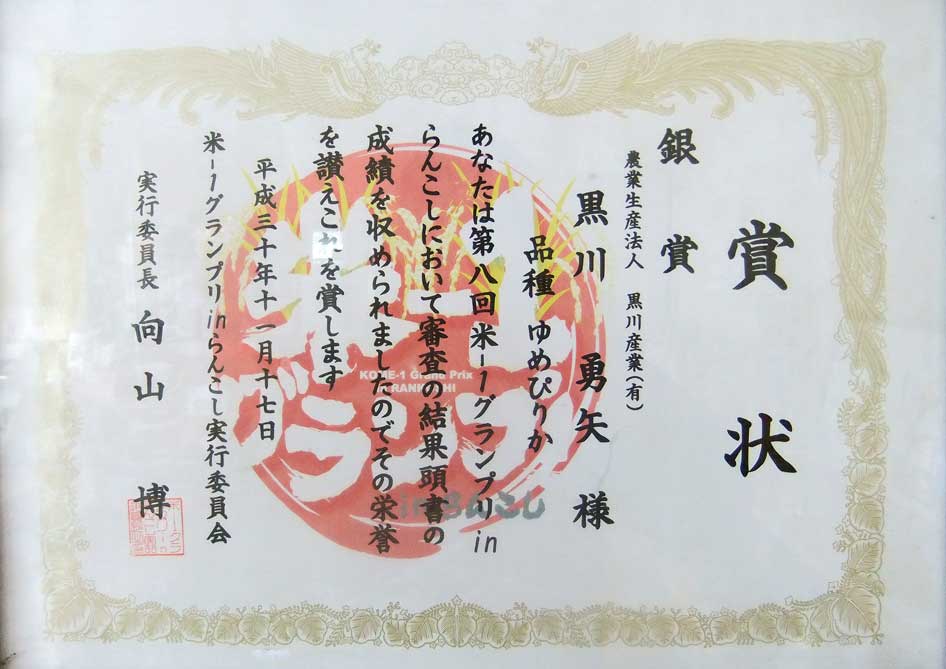 賞状
銀賞
農業生産法人 黒川産業(有)
黒川勇矢様
品種 ゆめぴりか
あなたは第八回米-1グランプリin
らんこしにおいて審査の結果頭書の
成績を収められましたのでその栄誉
を讃えこれを賞します
平成三十年十一月十七日
米-1グランプリinらんこし実行委員会
実行委員長 向山博
米-1
グランプリ
KOME-1 Grand Prix
in RANKOSHI
inらんこし